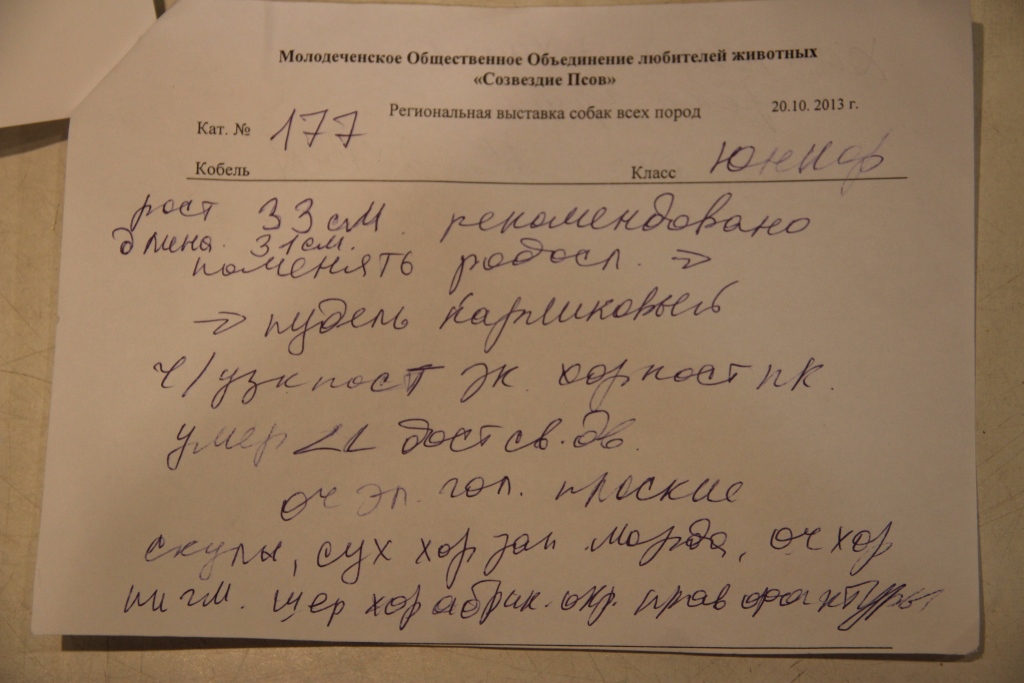 Молодеченское Общественное Объединение любителей животных
«Созвездие Псов»
Региональная выставка собак всех пород 20.10. 2013 г.
Кат. № 177
Кобель Класс юниор
рост 33 см. рекомендовано
длина. 31 см.
поменять родосл. →
→ пудель карликовый
ч/ узк пост эк. хор пост пк.
умер LL дост св. дв.
оч эл. гол. плоские
скулы, сух хор зап морда, оч хор
пигм. шер хор абрик. окр. прав фактуры